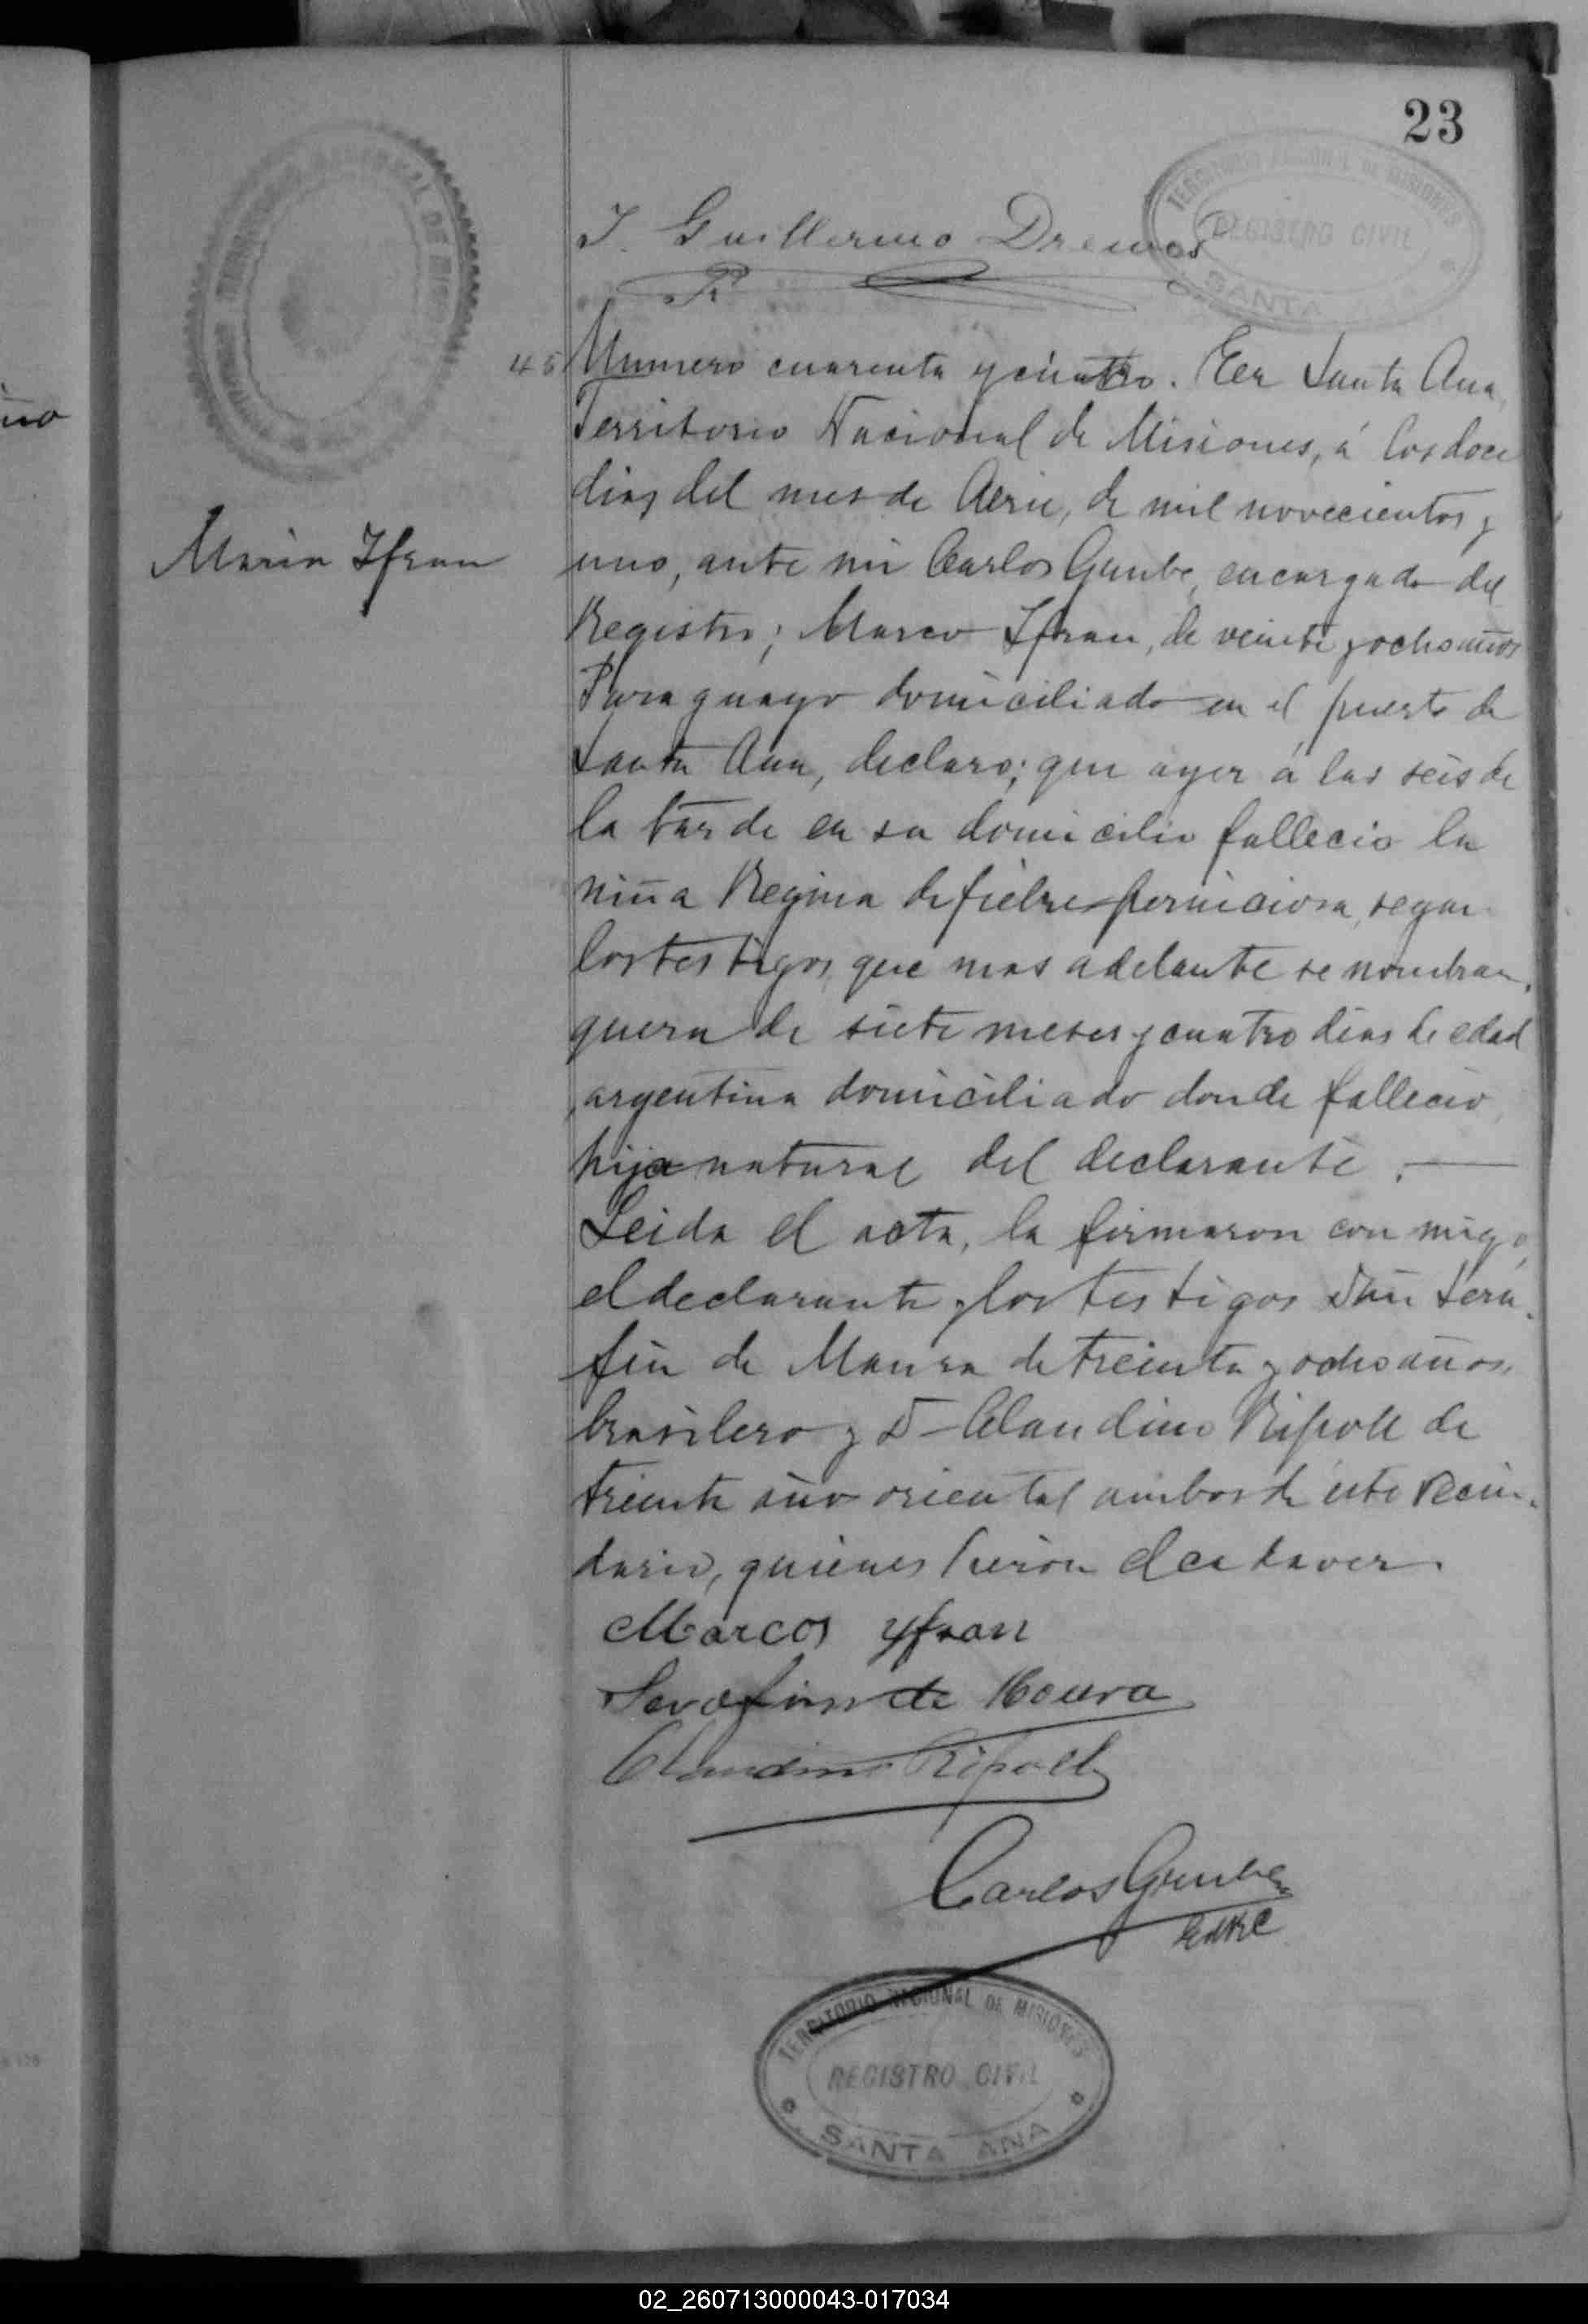 23
TERRITORIO NACIONAL DE MISIONES
REGISTRO CIVIL
SANTA
J. Guillermo
45
Numero cuarenta y cuatro. En Santa Ana,
Territorio Nacional de Misiones, á los doce
dias del mes de de mil novecientos y
uno, ante mi Carlos Grube, encargado del
Registro; Marco Ifran, de veinte y ocho años
Maria Ifran
Paraguayo domiciliado en el puerto de
Santa Ana, declaro; que ayer á las seis de
la tarde en su domicilio fallecio la
niña Regina de fiebre perniciosa, segun
los testigos que mas adelante se nombran,
quera de siete meses y cuatro dias de edad
argentina domiciliado donde fallecio,
hija natural del declarante.
Leida el acta, la firmaron con migo,
el declarante y los testigos Don Sera
fin de Maura de treinta y ocho años,
brasilero y D Claudino Ripoll de
treinta año oriental ambos de este vecin-
dario, quienes el cadaver.
Marcos yfran
Serafim de Moura
Claudino Ripoll
Carlos Grube
TERRITORIO NACIONAL DE MISIONES
REGISTRO CIVIL
SANTA ANA
02_260713000043-017034